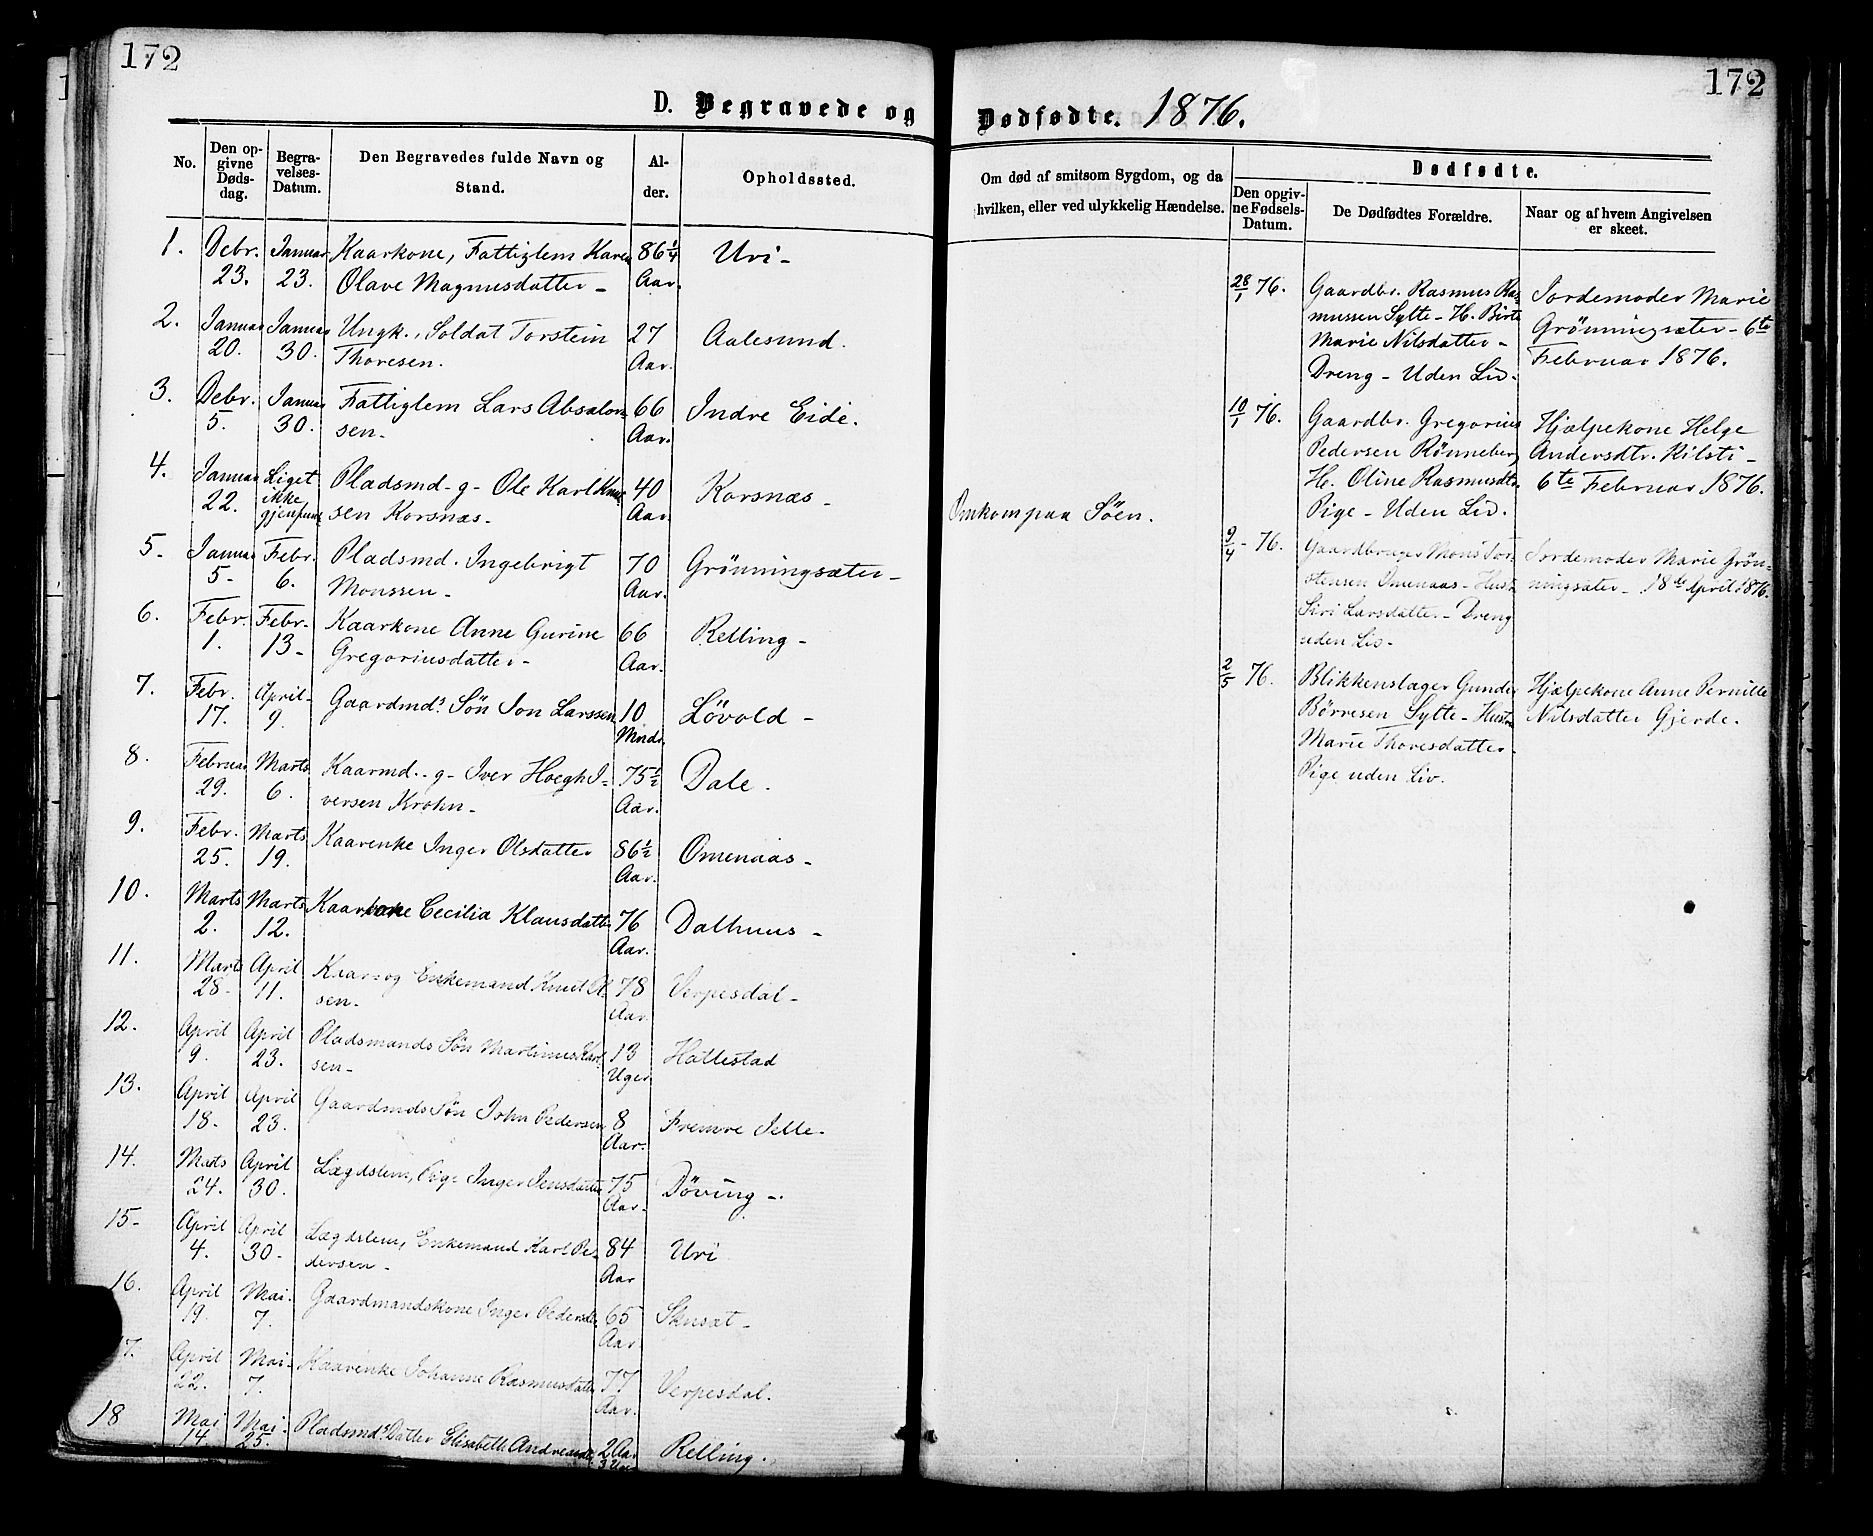 172
D. Begravede og
No.
Den op-
givne
Døds-
dag.
Begra-
velses-
Datum.
Den Begravedes fulde Navn og
Stand.
Al-
der.
Opholdssted.
1. Debr. 23. Januar 23. Kaarkone, Fattiglem Karen 86 1/4 Uri -
Olave Magnusdatter - Aar.
2. Januar 20. Januar 30. Ungk., Soldat Torstein 27 Aalesund.
Thoresen. Aar.
3. Debr. 5. Januar 30. Fattiglem Lars Absalon- 66 Indre Eide.
sen. Aar.
4. Januar 22. Liget ikke Pladsmd - g - Ole Karl Knud 40 Korsnæs -
gjenfund. sen Korsnæs. Aar.
5. Januar 5. Febr. 6. Pladsmd. Ingebrigt 70 Grönningsæter -
Monssen - Aar.
6. Febr. 1. Febr. 13 - Kaarkone Anne Gurine 66 Relling -
Gregoriusdatter - Aar.
7. Febr. 17. April 9. Gaardmds Søn Jon Larssen 10 Lövold -
Mndr.
8. Februar 29. Marts 6. Kaarmd. - g - Iver Hoegh I- 75 1/2 Dale.
versen Krohn - Aar.
9. Febr. 25. Marts 19. Kaarenke Inger Olsdatter 86 1/2 Omenaas -
Aar.
10. Marts 2. Marts 12. Kaarkone Cecilia Klausdatter 76 Dalhuus -
Aar.
11. Marts 28. April 11. Kaar- og Enkemand Knut Ol- 78 Verpesdal -
sen - Aar
12. April 9. April 23. Pladsmands Søn Martinus Karl 13 Hattestad
sen - Uger
13. April 18. April 23. Gaardmds Søn John Pedersen 8 Fremre Selle -
Aar.
14. Marts 24. April 30. Lægdslem, Pige Inger Jensdatter 75 Döving -
Aar.
15 - April 4. April 30 - Lægdslem, Enkemand Karl Pe- 84 Uri
dersen - Aar
16. April 19. Mai 7. Gaardmandskone Inger Pedersdtr. 65
Aar
17. April 22. Mai 7. Kaarenke Johanne Rasmusdatter 77 Verpesdal.
Aar.
18 Mai 14 Mai 25. Pladsmds Datter Elisabeth Andreasdtr. 2 Aar Relling.
3 Uger
172
Dødfødte. 1876.
Om død af smitsom Sygdom, og da
hvilken, eller ved ulykkelig Hændelse.
Dødfødte.
Den opgiv-
ne Fødsels-
Datum.
De Dødfødtes Forældre.
Naar og af hvem Angivelsen
er skeet.
Omkom paa Söen.
28/1 76. Gaardbr. Rasmus Ras- Jordemoder Marie
mussen Sylte - H. Birte Grönningsæter - 6te
Marie Nilsdatter - Februar 1876.
Dreng - Uden Liv.
10/1 76. Gaardbr. Gregorius Hjælpekone Helge
Pedersen Rönneberg Andersdtr. Kilsti -
H. Oline Rasmusdtr. 6te Februar 1876.
Pige - Uden Liv.
9/4 - 76. Gaardbruger Mons Tor- Jordemoder Marie Grön-
stensen Omenaas - Hustr. ningsæter - 18de April 1876.
Siri Larsdatter - Dreng
uden Liv -
2/5 76. Blikkenslager Gunder Hjælpekone Anne Pernille
Börresen Sylte - Hustr. Nilsdatter Gjerde.
Marie Thoresdatter -
Pige uden Liv.